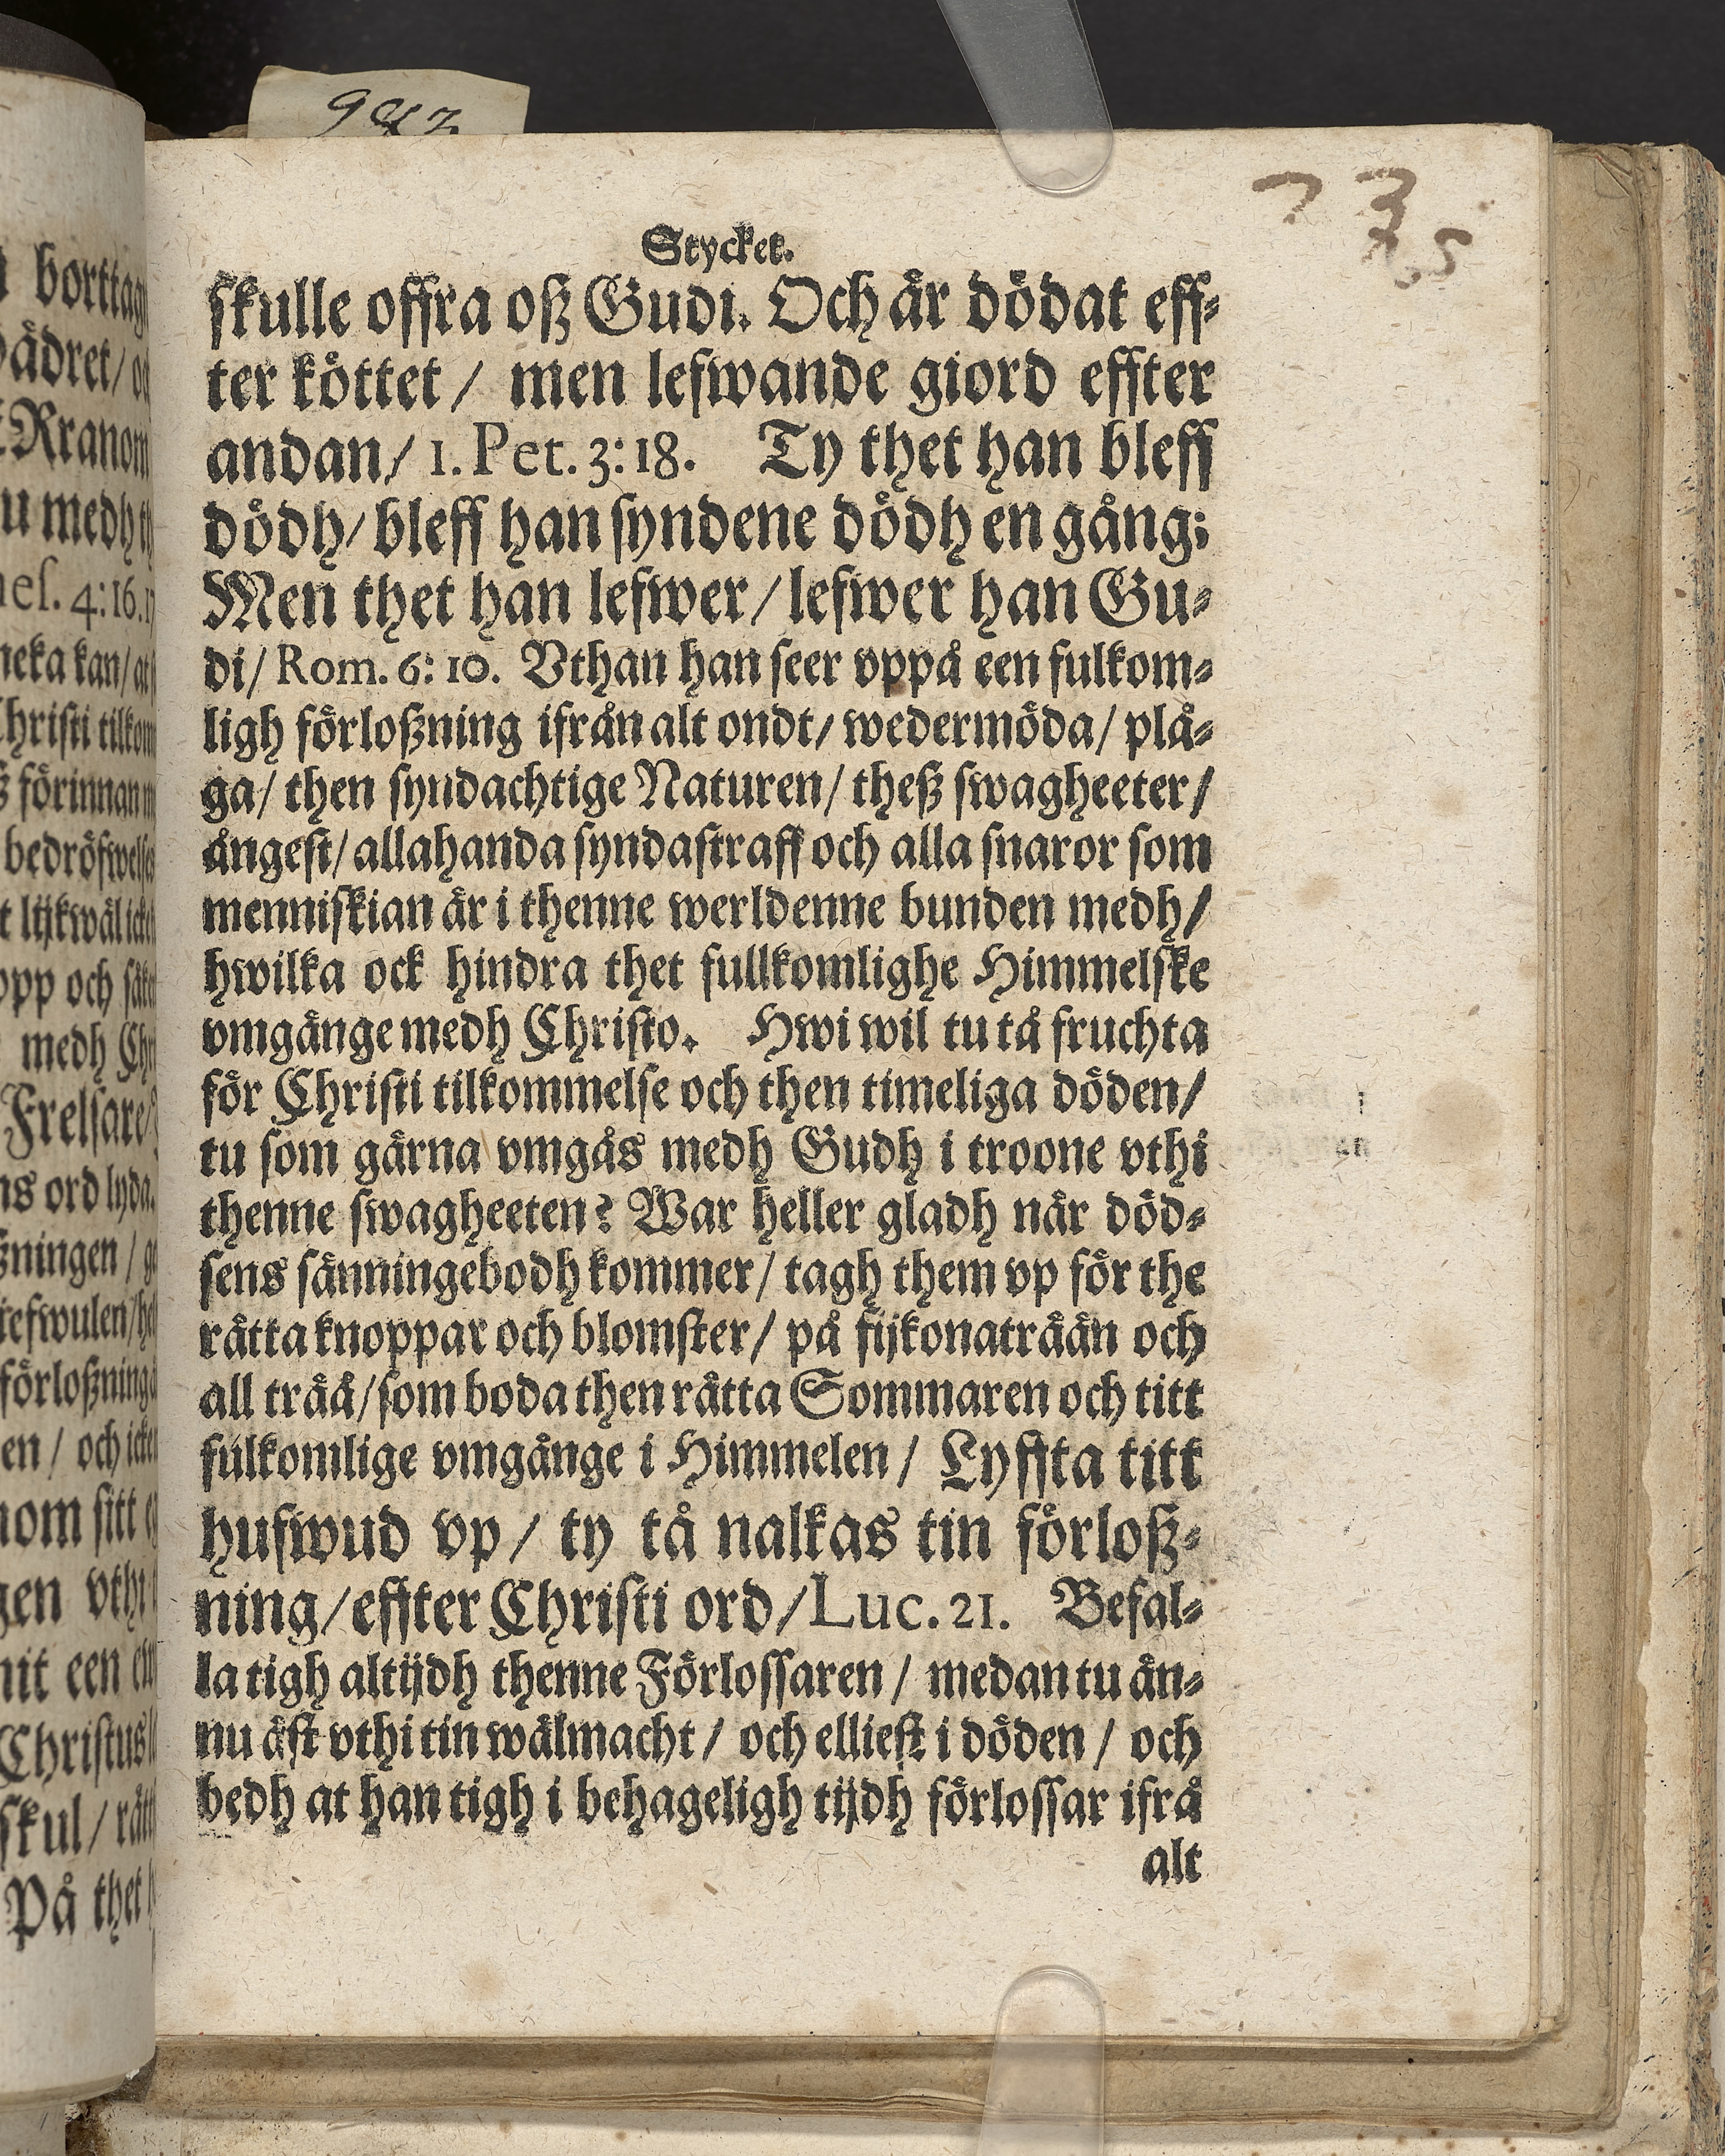 Stycket.
skulle offra oß Gudi. Och är dödat eff-
ter köttet / men lefwande giord effter
andan / 1. Pet. 3: 18. Ty thet han bleff
dödh / bleff han syndene dödh en gång;
Men thet han lefwer / lefwer han Gu-
di / Rom. 6: 10. Vthan han seer vppå een fulkom-
ligh förloßning ifrån alt ondt / wedermöda / plå-
ga / then syndachtige Naturen / theß swagheeter /
ångest / allahanda syndastraff och alla snaror som
menniskian är i thenne werldenne bunden medh /
hwilka ock hindra thet fullkomlighe Himmelske
vmgänge medh Christo. Hwi wil tu tå fruchta
för Christi tilkommelse och then timeliga döden /
tu som gärna vmgås medh Gudh i troone vthi
thenne swagheeten? War heller gladh när död-
sens sänningebodh kommer / tagh them vp för the
rätta knoppar och blomster / på fijkonaträän och
all trää / som boda then rätta Sommaren och titt
fulkomlige vmgänge i Himmelen / Lyffta titt
hufwud vp / ty tå nalkas tin förloß-
ning / effter Christi ord / Luc. 21. Befal-
la tigh altijdh thenne Förlossaren / medan tu än-
nu äst vthi tin wälmacht / och elliest i döden / och
bedh at han tigh i behageligh tijdh förlossar ifrå
alt